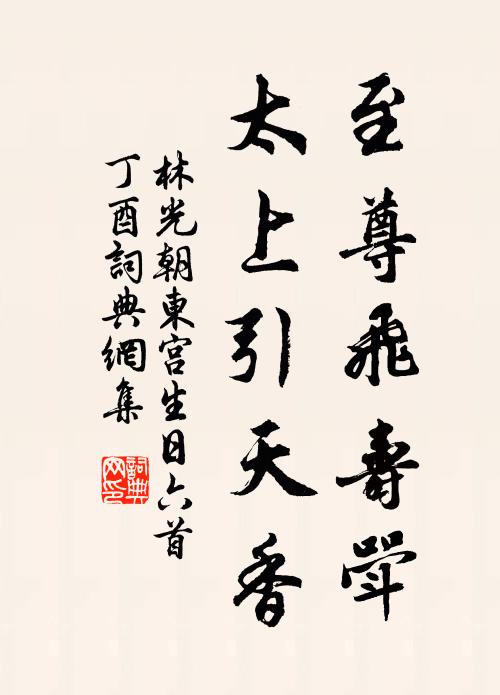 至尊飛壽斝
太上引天香
林光朝東宮生日六首
丁酉詞典網集
詞典網印